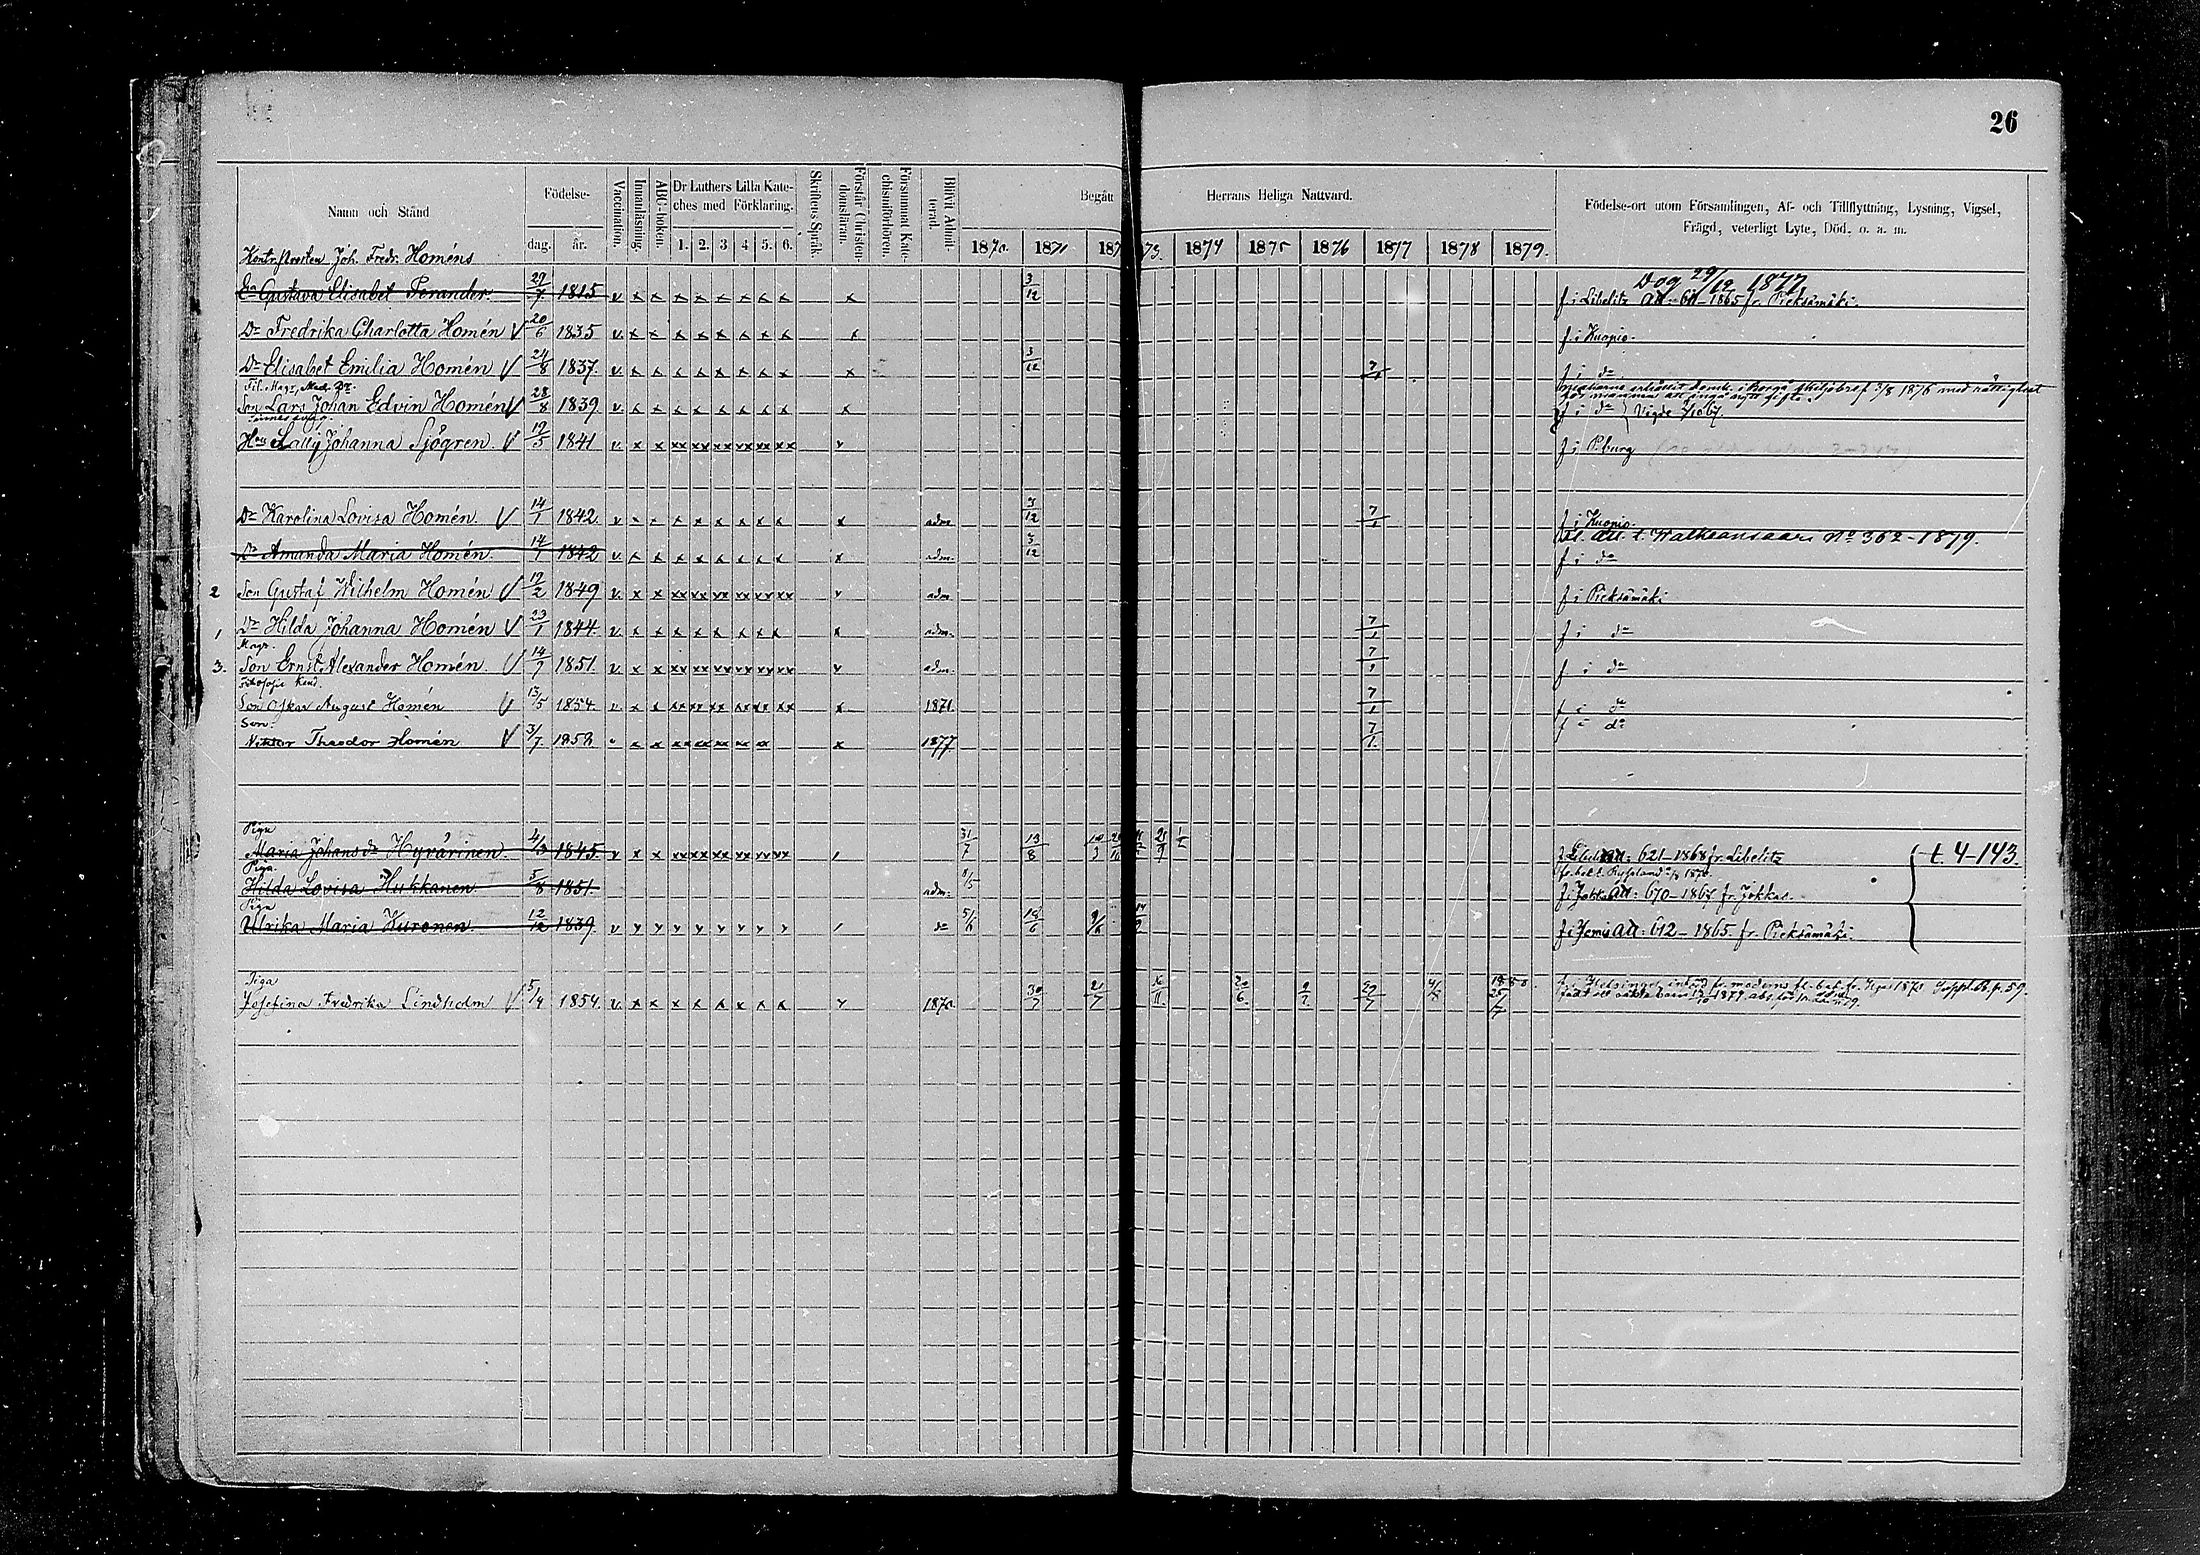 26
Namn och Stånd
Födelse-
dag. år.
Vaccination.
Innanläsning.
ABC-boken.
Dr Luthers Lilla Kate-
ches med Förklaring.
1. 2. 3 4 5. 6.
Skriftens Språk.
Förstår Christen-
domsläran.
Försummat Kate-
chismiförhören.
Blifvit Admit-
terad.
Begått Herrans Heliga Nattvard.
1870. 1871 187 73. 1874 1875 1876 1877 1878 1879.
Födelse-ort utom Församlingen, Af- och Tillflyttning, Lysning, Vigsel,
Frägd, veterligt Lyte, Död, o. a. m.
Kontr. Prosten Joh. Fredr. Homéns
Dog 29/12 1877.
Ea Gustava Elisabet Perander. 29/7 1815 v x x x x x x x x x 3/12 f. i Libelitz att: 611-1865 fr. Pieksämäki.
Dr Fredrika Charlotta Homén V 20/6 1835 v. x x x x x x x x x f. i Kuopio.
Dr Elisabet Emilia Homén V 24/8 1837. v x x x x x x x x x 3/12 7/1 f i do
Fil. Magr, Med. Dr.
3/8 1876 med rättighet
Son Lars Johan Edvin Homén V 28/8 1839 v x x x x x x x x x f i do Vigde
Hu Lally Johanna Sjögren. V 19/5 1841 v x x xx xx xx xx xx xx v f i P.burg
Dr Karolina Lovisa Homén. V 14/1 1842. v x x x x x x x x x adm 3/12 7/1 f i Kuopio.
att. t. Walkeansaari No 362-1879.
Dr Amanda Maria Homén. 14/1 1842 v. x x x x x x x x x adm. 3/12 f i do
2 Son Gustaf Wilhelm Homén V 12/2 1849 v. x x xx xx xx xx xx xx v adm f i Pieksämäki
1 Dr Hilda Johanna Homén V 23/1 1844. v. x x x x x x x x x adm. 7/1 f i do
Magr.
3. Son Ernst Alexander Homén. V 14/7 1851. v x xx xx xx xx xx xx v adm. 7/1 f i do
Filosofie Kand.
Son Oskar August Homén V 13/5 1854. v x x xx xx xx xx xx xx x 1871. 7/1 f i do
Son
Viktor Theodor Homén V 3/7 1858 x x xx xx xx xx xx x 1877. 7/1. f i do
Piga
Maria Johansdr Hyvärinen. 4/3 1845. v x x xx xx xx xx xx xx 31/7 13/8 att: 621-1868 fr. Libelitz t. 4-143.
Piga.
Hilda Lovisa Hukkanen 5/8 1851. adm: att: 670-1867 fr. Jokkas.
Piga
Ulrika Maria Kuronen. 12/12 1839 v y y y y y y y y do 5/6 18/6 9/6 f i Jomis att: 612-1865. fr. Pieksämäki.
Piga
Josefina Fredrika Lindholm V 5/4 1854. v. x x x x x x x x y 1870. 30/7 21/7 20/6. 9/7. 29/7 4/8 25/7 f. i Helsinge, Suppl. B. p. 59.